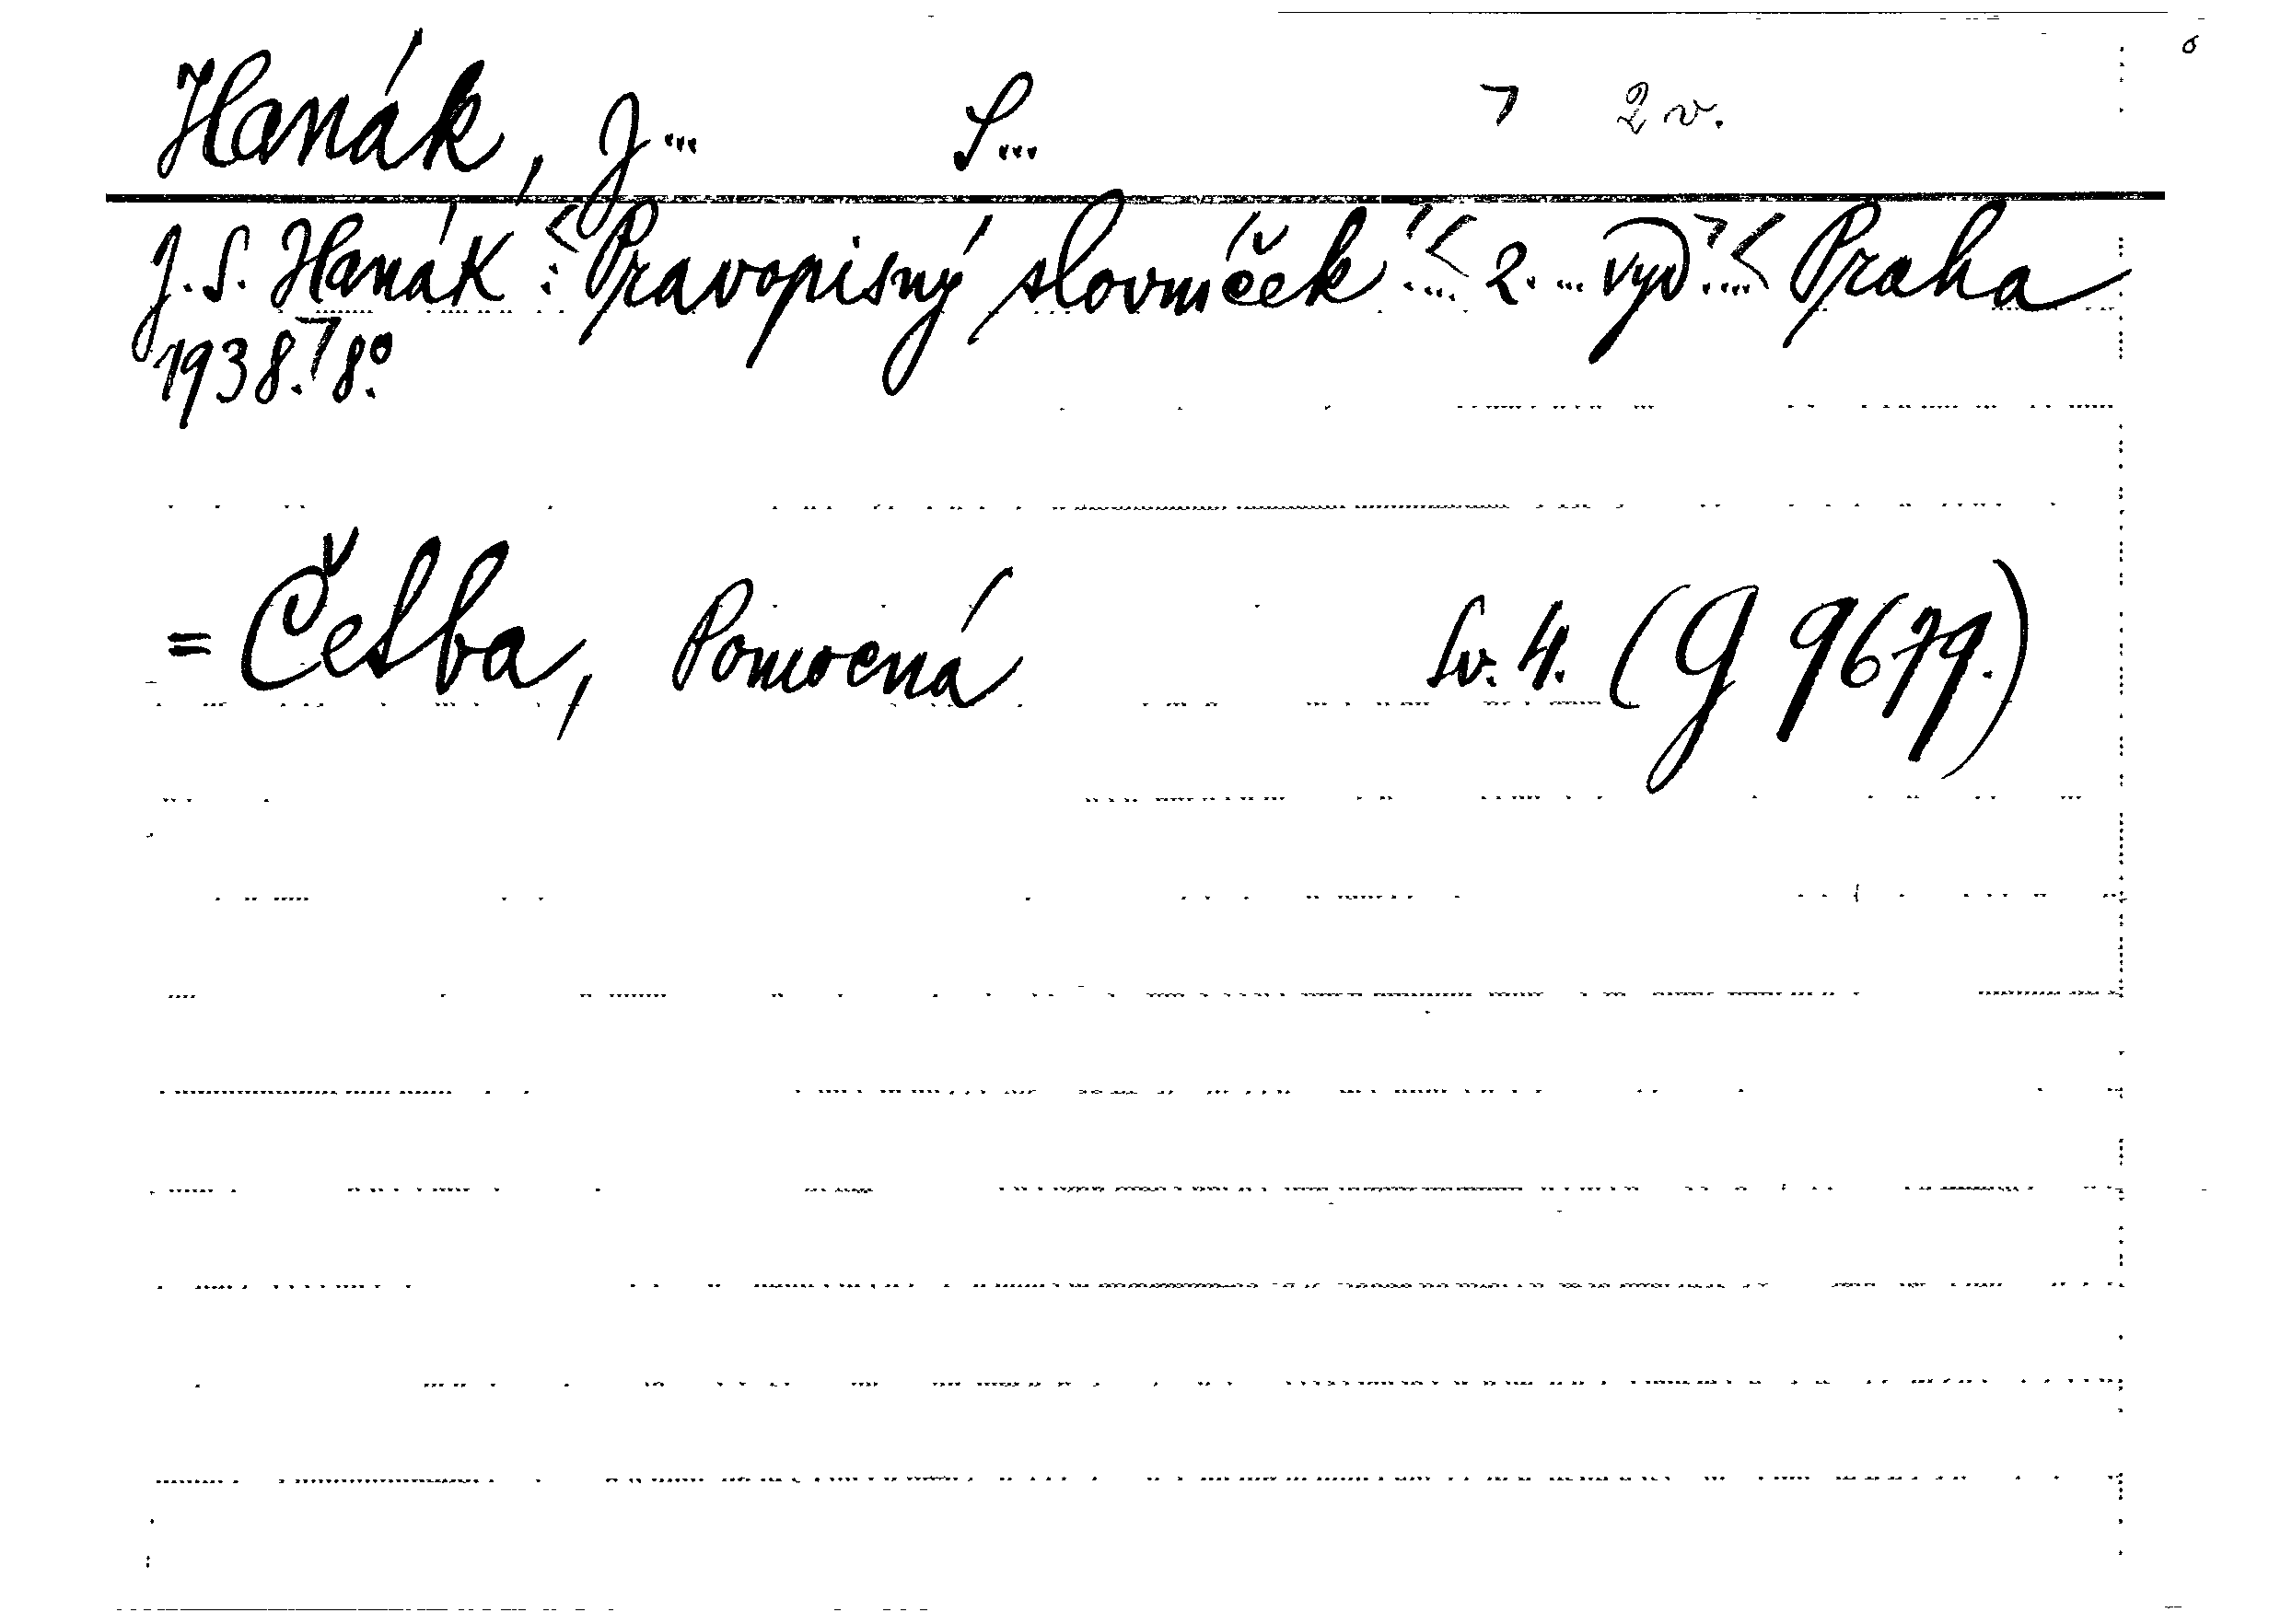 Hanák, J... S... ⌝ 2 v.
J. S. Hanák: < Pravopisný slovníček.... < 2. ... vyd.⌝... < Praha
1938.⌝ 8°.
= Četba, Pomocná Sv. 4. (G 9679.)